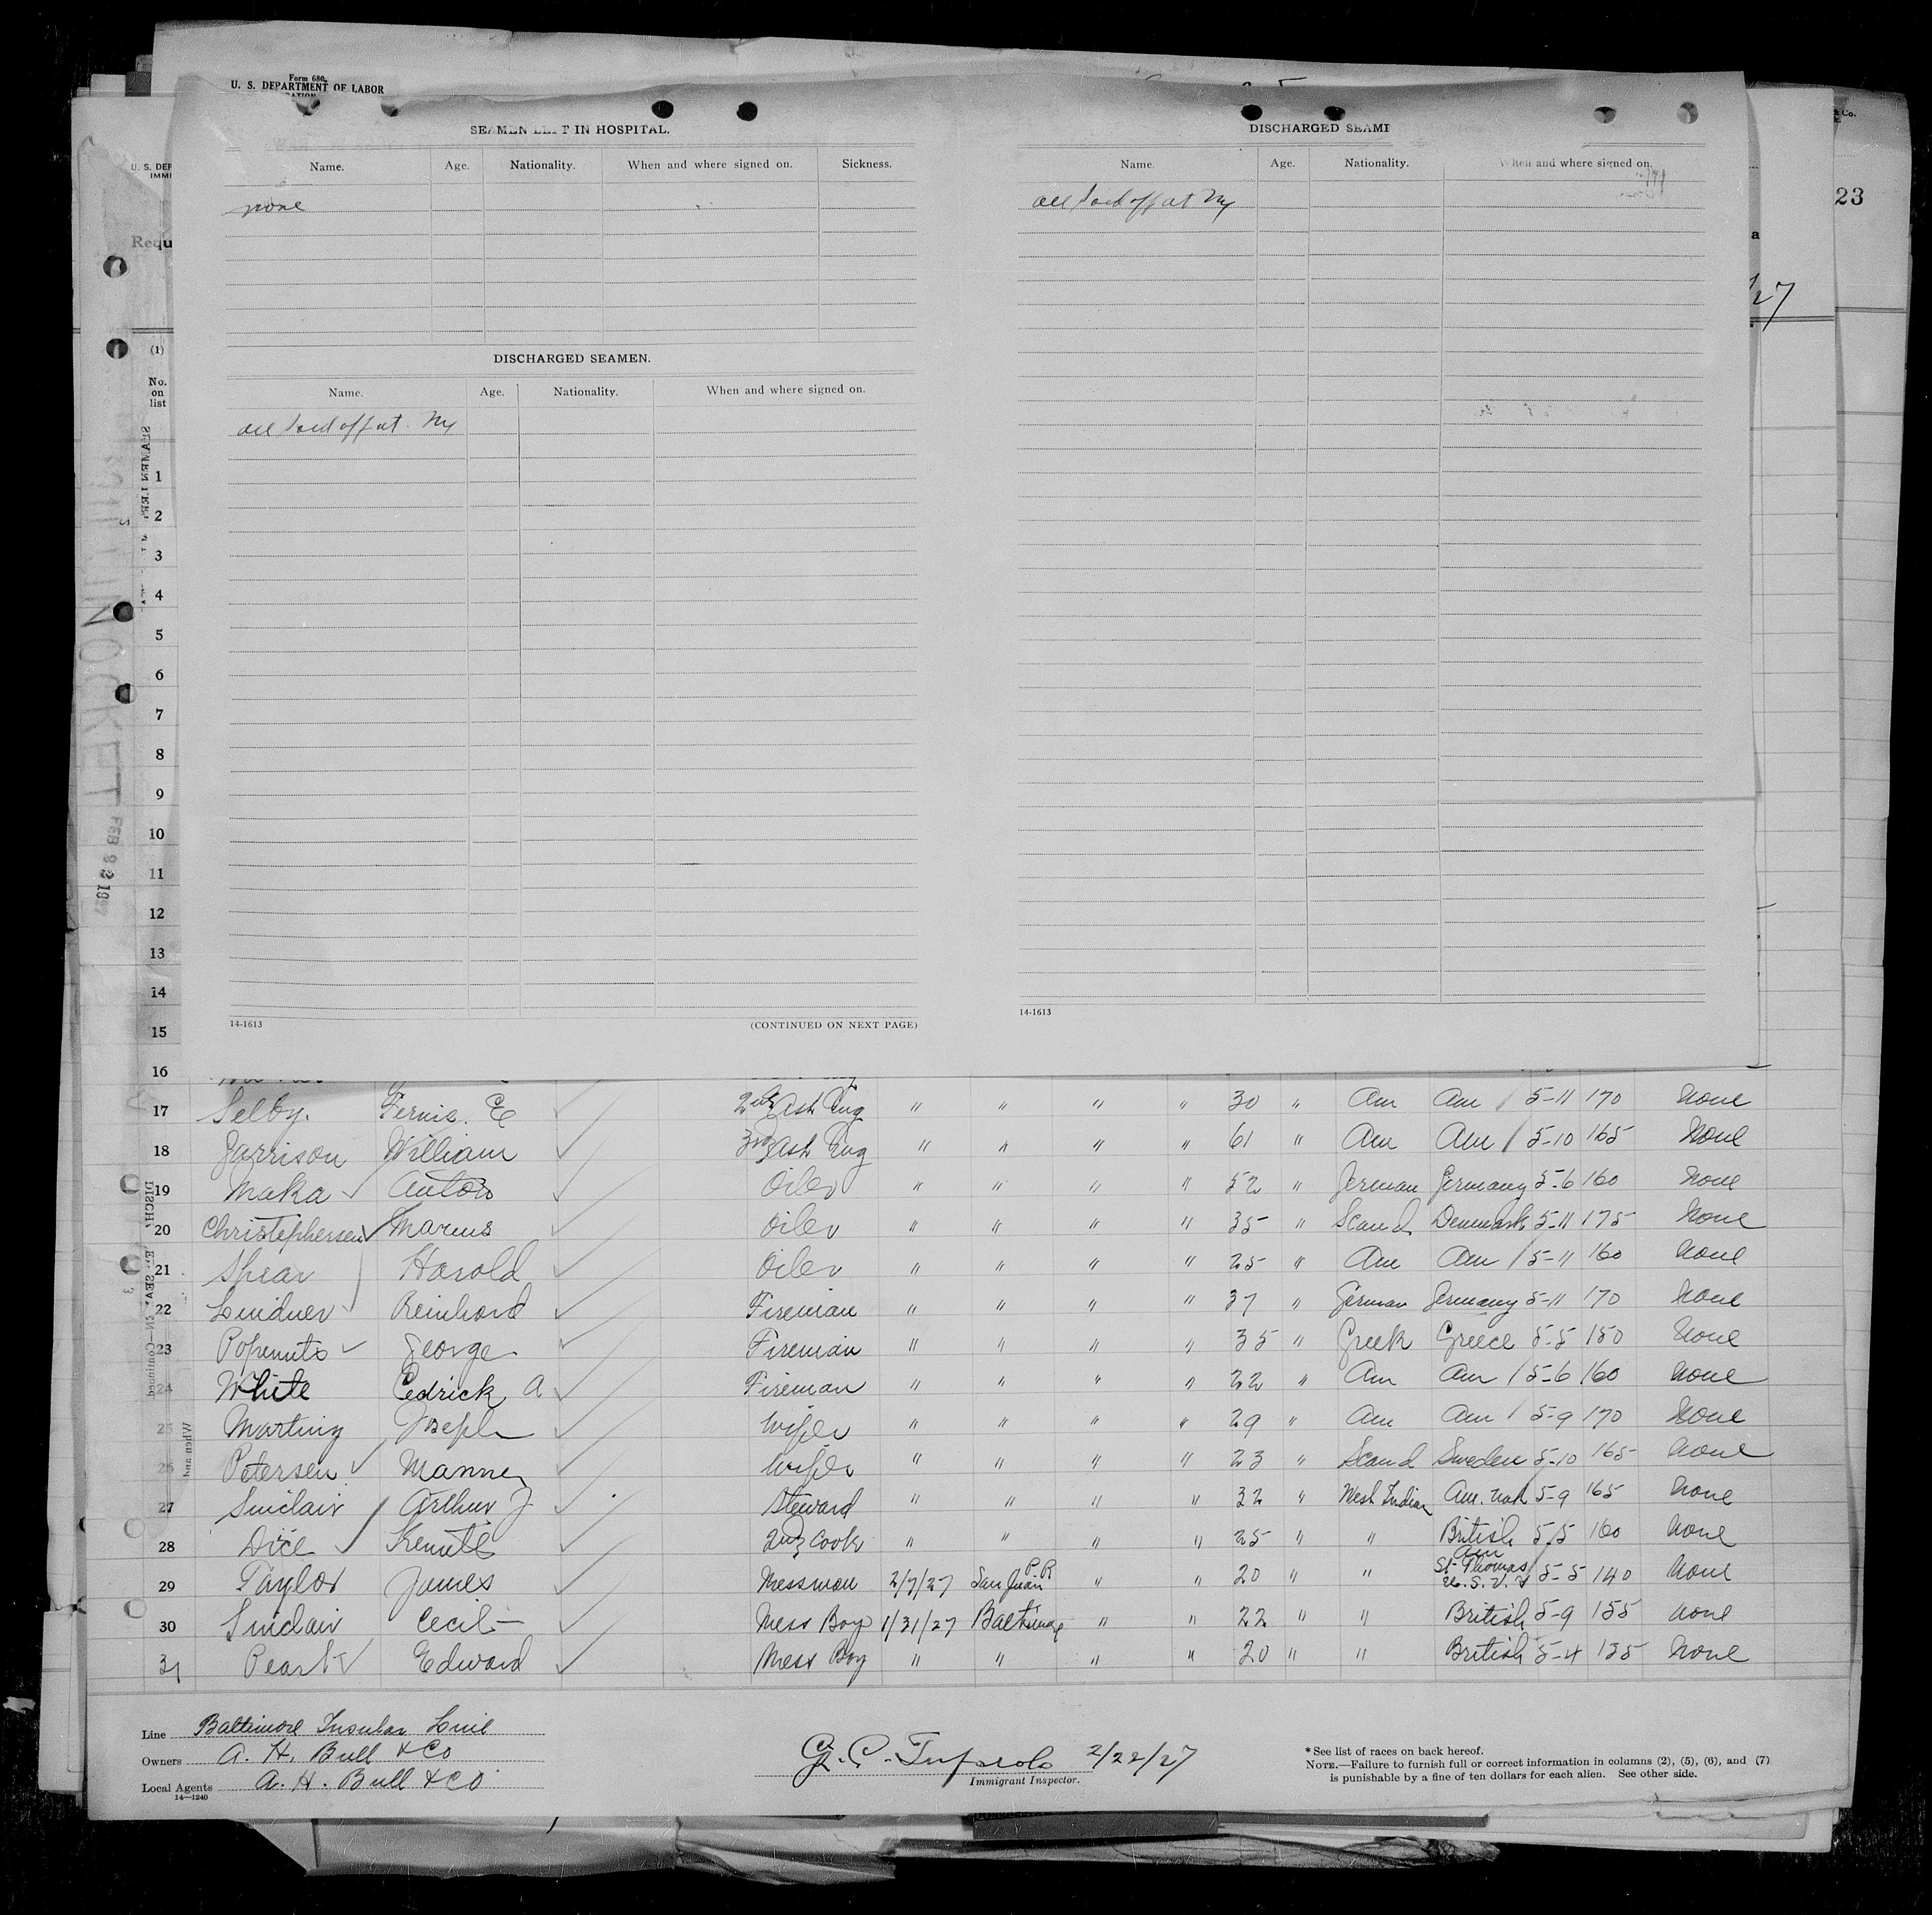 Form 680
U. S. DEPARTMENT OF LABOR
SEAMEN LEFT IN HOSPITAL.
Name. Age. Nationality. When and where signed on. Sickness.
none
DISCHARGED SEAMEN.
Name. Age. Nationality. When and where signed on.
all paid off at Ny
14-1613
(CONTINUED ON NEXT PAGE)
DISCHARGED SEAME
Name. Age. Nationality. When and where signed on.
all paid off at Ny
14-1613
U. S. DEP
IMMI
Requ
23
a
/27
(1)
No.
on
list
1
2
3
4
5
6
7
8
9
10
11
12
13
14
15
16
17 Selby. Fernis. E 2nd Asst Eng " " " " 30 " Am Am 5-11 170 None
18 Garrison William 3rd Asst Eng " " " " 61 " Am Am 5-10 165 None
19 Maka Anton Oiler " " " " 52 " German Germany 5-6 160 None
20 Christephersen Marius Oiler " " " " 35 " Scand Denmark 5-11 175 None
21 Spear Harold Oiler " " " " 25 " Am Am 5-11 160 None
22 Lindner Reinhord Fireman " " " " 37 " German Germany 5-11 170 None
23 George Fireman " " " " 35 " Greek Greece 5-5 150 None
24 White Cedrick A Fireman " " " " 22 " Am Am 5-6 160 None
25 Martiny Joseph Wiper " " " " 29 " Am Am 5-9 170 None
26 Petersen Manne Wiper " " " " 23 " Scand Sweden 5-10 165 None
27 Sinclair Arthur J Steward " " " " 32 " West Indian Am. Nat 5-9 165 None
28 Dice 2nd Cook " " " " 25 " " British 5-5 160 None
29 Taylor James Messman 2/7/27 San Juan P.R " " 20 " " Am St Thomas U.S.V.I 5-5 140 None
30 Sinclair Cecil Mess Boy 1/31/27 Baltimore " " 22 " " British 5-9 155 None
31 Peart Edward Mess Boy " " " " 20 " " British 5-4 135 None
Line Baltimore Insular Line
Owners A. H. Bull & Co
Local Agents A. H. Bull & Co
14-1240
2/22/27
Immigrant Inspector.
*See list of races on back hereof.
NOTE.—Failure to furnish full or correct information in columns (2), (5), (6), and (7)
is punishable by a fine of ten dollars for each alien. See other side.